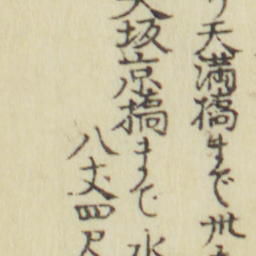 天満橋まで卅
大坂京橋まで 水
八丈四尺